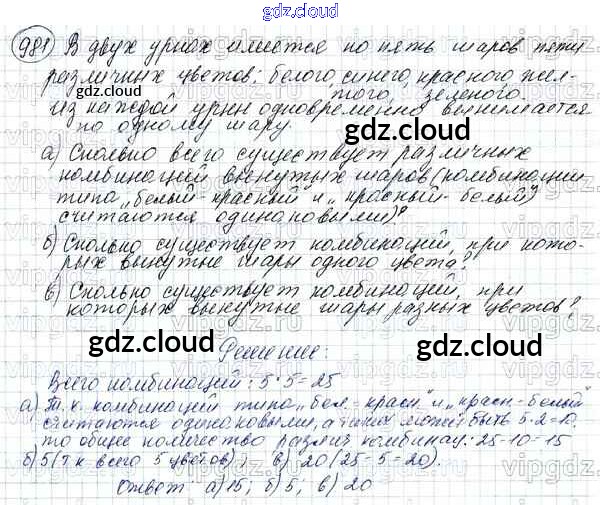 gdz.cloud
981) В двух урнах имеется по пять шаров пяти
различных цветов: белого, синего, красного, жел-
того, зеленого.
gdz.cloud
Из каждой урны одновременно вынимается
по одному шару.
gdz.cloud
а) Сколько всего существует различных
комбинаций вынутых шаров (комбинации
типа „белый-красный" и „красный-белый"
считаются одинаковыми)?
б) Сколько существует комбинаций, при кото-
рых вынутые шары одного цвета?
gdz.cloud
в) Сколько существует комбинаций, при
которых вынутые шары разных цветов?
gdz.cloud
gdz.cloud
Решение:
Всего комбинаций: 5·5=25
а) Т.к. комбинаций типа „бел.-красн" и „красн-белый"
считаются одинаковыми, а таких может быть 5·2=10,
то общее количество различ комбинац: 25-10=15
б) 5 (т к всего 5 цветов); в) 20 (25-5=20).
Ответ: а) 15; б) 5; в) 20
gdz.cloud